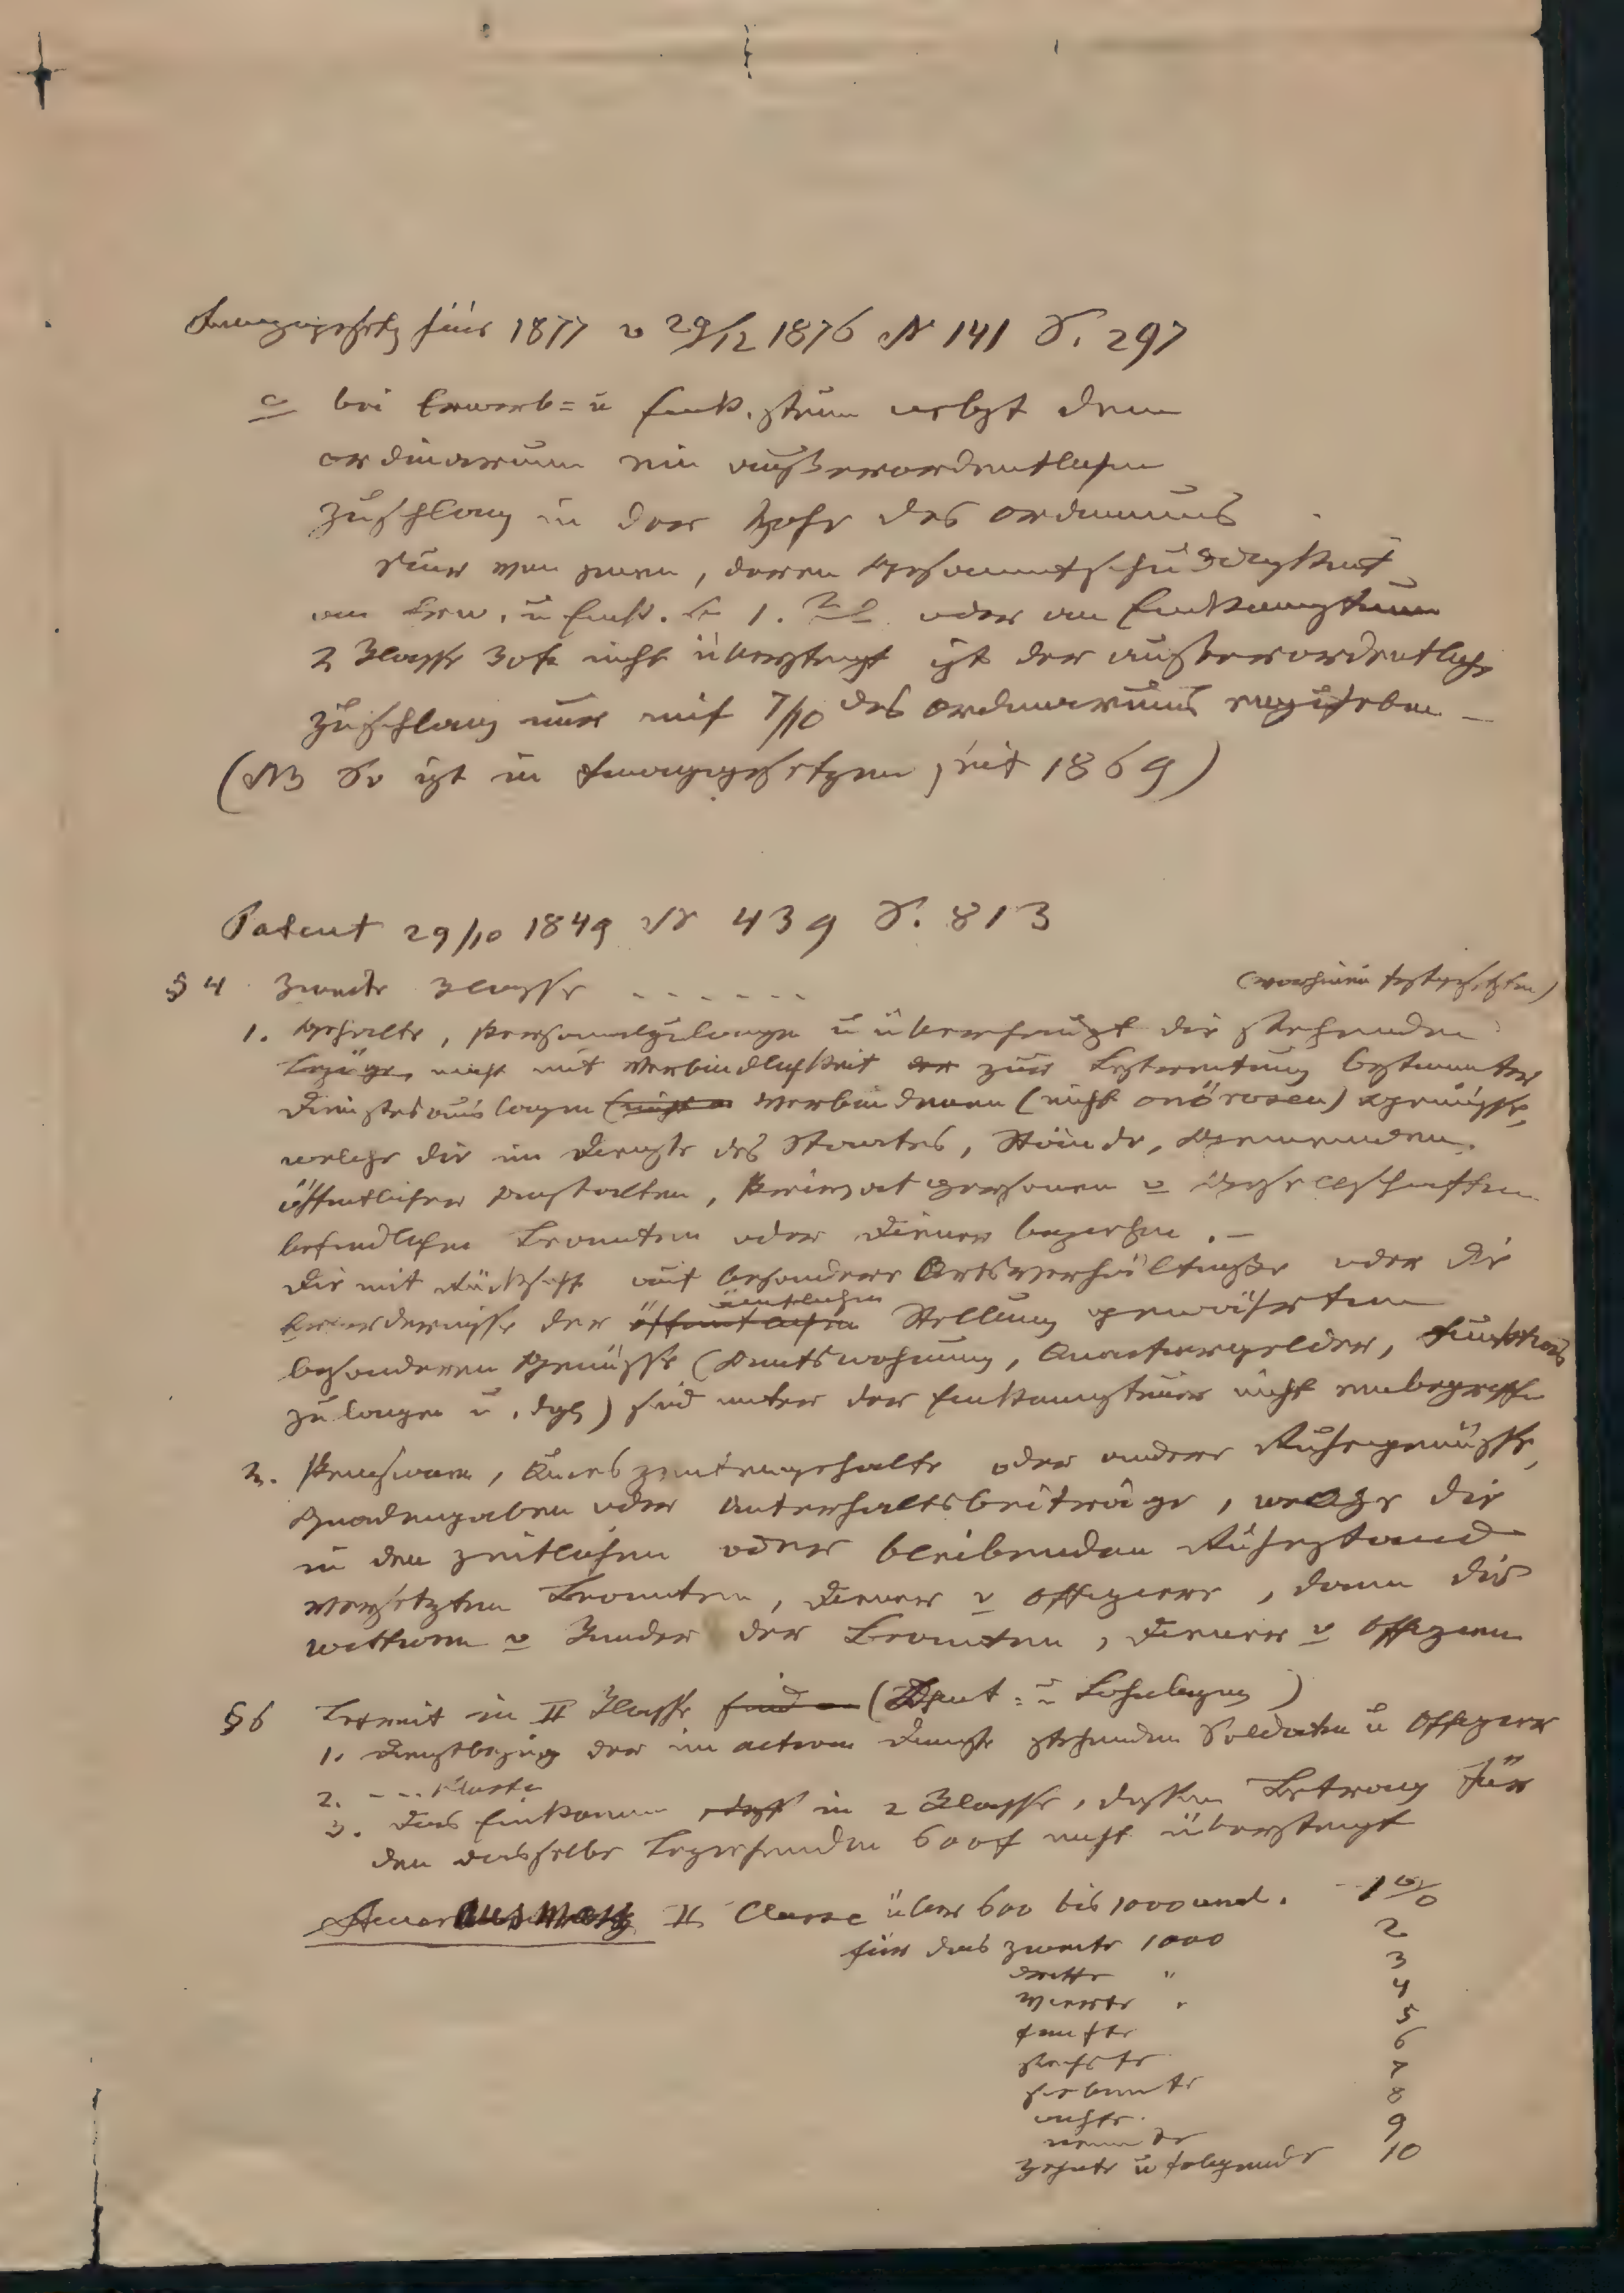 Finanzgesetz für 1877 v 29/12 1876 Nr 141 S. 297
c bei Erwerb= u Eink.steuer nebst dem
ordinarium ein außerordentlicher
Zuschlag in der Höhe des ordinariums
nur von jenen, deren Gesammtschuldigkeit
an Erw. u Eink. St 1. u 2 oder an Einkommsteuer
2 Klasse 30 fl nicht übersteigt ist der außerordentliche
Zuschlag nur mit 7/10 des ordinariums einzuheben –
(NB So ist in Finanzgesetzen seit 1869)
Patent 29/10 1849 Nr 439 S. 813
§ 4 Zweite Klasse . . . . . .
(vorhinein festgesetzten)
1. Gehalte, Personalzulagen u überhaupt die stehenden
Bezüge, nicht mit Verbindlichkeit der zur Bestreitung bestimmter
Dienstesauslagen (nicht verbundenen (nicht onörosen) Genüsse,
welche die im Dienste des Staates, Stände, Gemeinden,
öffentlicher Anstalten, Privatpersonen u Gesellschaften
befindlichen Beamten oder Diener beziehen. –
Die mit Rücksicht auf besondere Ortsverhältnisse oder die
ämtlichen
Erfordernisse der öffentlichen Stellung gewährten
besonderen Genüsse (Amtswohnung, Quartiergelder, Funktions
zulagen u. dgl) sind unter der Einkommsteuer nicht einbegriffen
2. Pensionen, Quieszentengehalte oder andere Ruhegenüsse,
Gnadengaben oder Unterhaltsbeiträge, welche die
in den zeitlichen oder bleibenden Ruhestand
versetzten Beamten, Diener u Offiziere, dann die
Wittwen u Kinder der Beamten, Diener u Offiziere
§ 6 Befreit in II Klasse sind (Dienst= u Lohnbezug)
1. Dienstbezug der im activen Dienste stehenden Soldaten u Offiziere
2. - - -
3. Das Einkommen in 2 Klasse, dessen Betrag für
den dasselbe Beziehenden 600 f nicht übersteigt
Steuer Ausmaß II Classe über 600 bis 1000 incl. - - 1 %
für das zweite 1000 2
dritte " 3
vierte " 4
fünfte 5
sechste 6
siebente 7
achte 8
neunte 9
zehnte u folgende 10